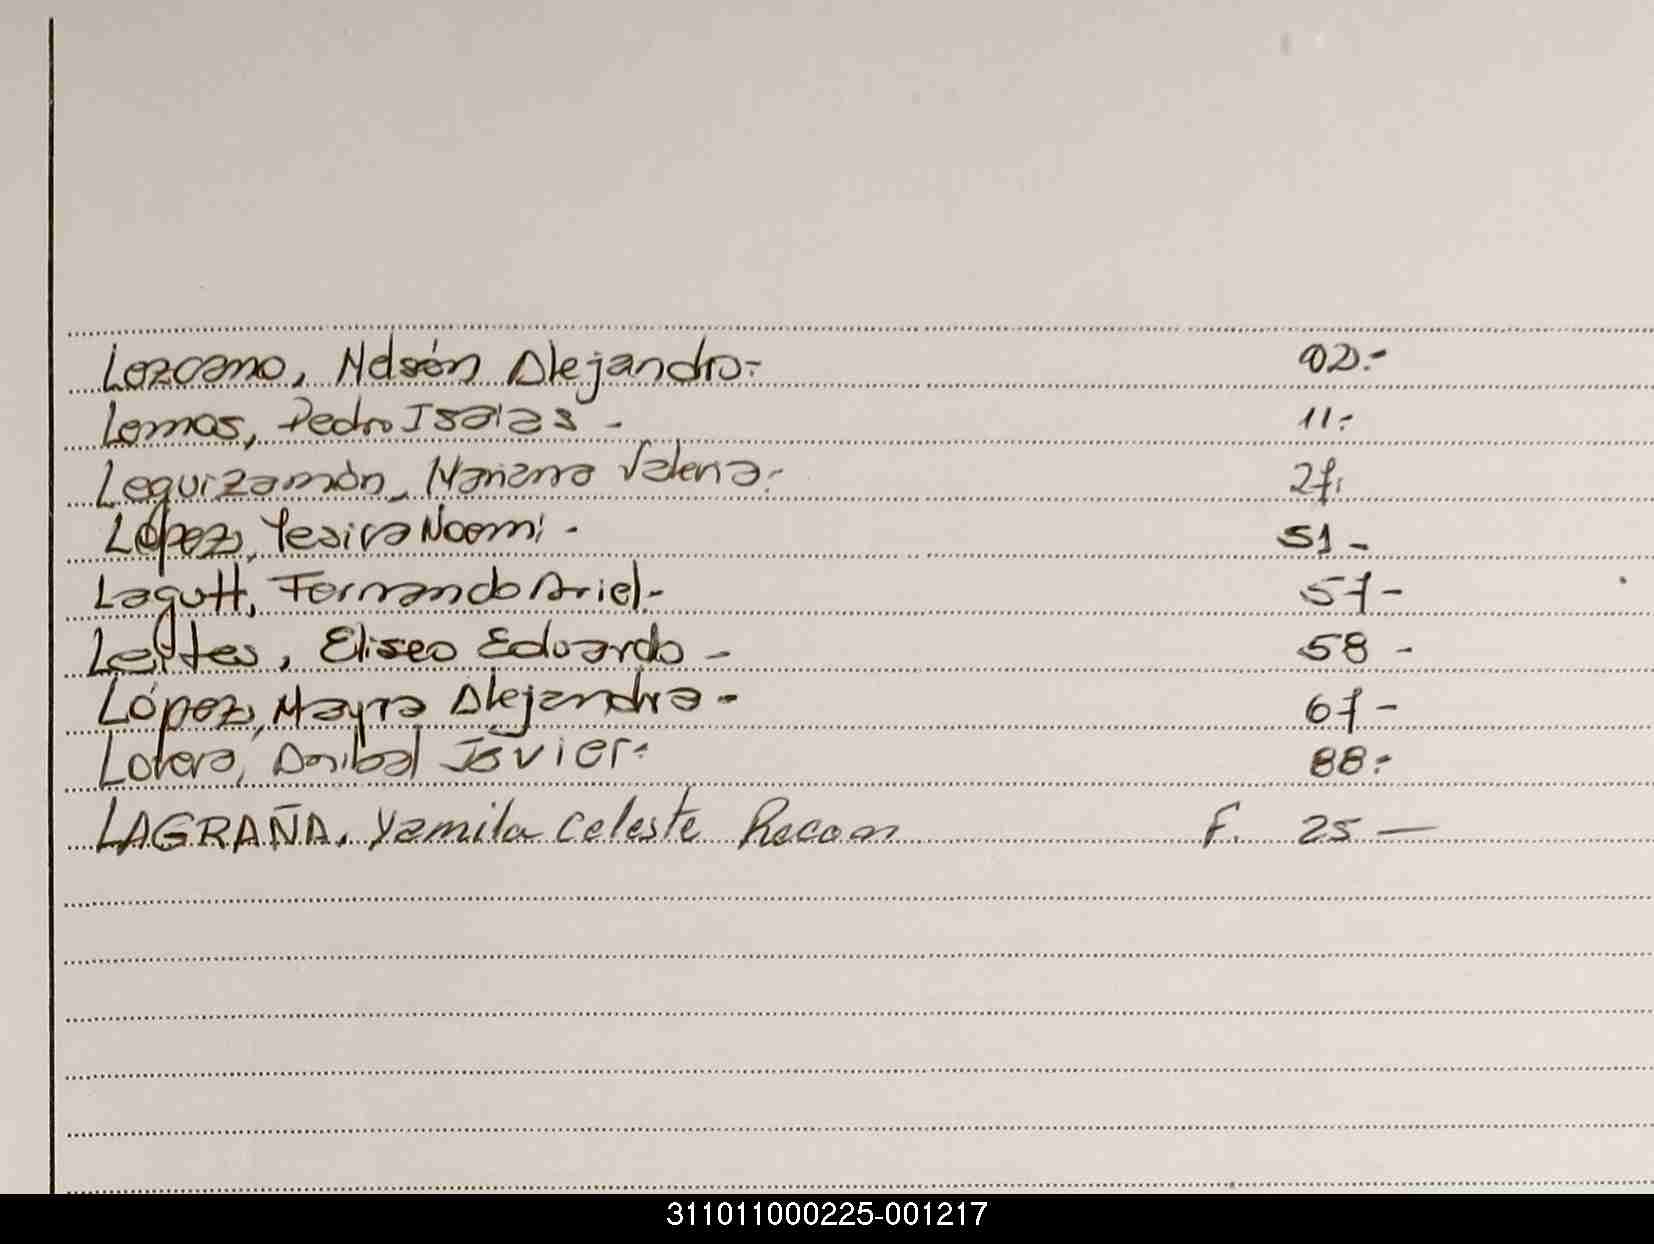 Lezcano, Nelsón Alejandro.- 02.-
Lemos, Pedro Isaias - 11.-
Leguizamón, Mariana Valeria.- 27.
López, Yesica Noemi - 51 -
Lagutt, Fernando Ariel.- 57-
Leites, Eliseo Eduardo - 58 -
López, Mayra Alejandra - 67-
Lovera, Anibal Javier.- 88.-
LAGRAÑA. Yamila Celeste Recon F. 25 —
311011000225-001217